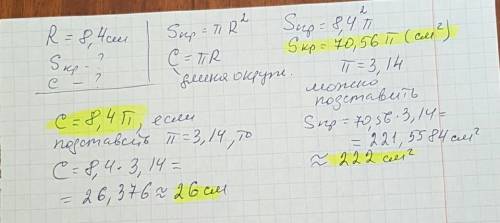 R = 8,4 см
Sкр - ?
C - ?
Sкр = πR²
C = πR
длина окруж.
Sкр = 8,4² π
Sкр = 70,56 π (см²)
π = 3,14
можно
подставить
Sкр = 70,56 · 3,14 =
= 221,5584 см²
≈ 222 см²
C = 8,4 π, если
подставить π = 3,14, то
C = 8,4 · 3,14 =
= 26,376 ≈ 26 см